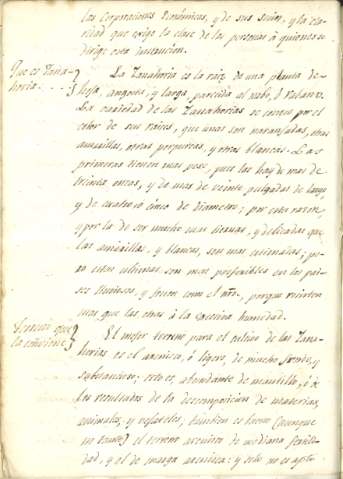 las Corporaciones Económicas, y de sus Socios, y la cla-
ridad que exige la clase de las personas á quienes se
dirige esta instruccion.
Que es Zana-
horia.
La Zanahoria es la raiz de una planta de
hoja, angosta, y larga, parecida al nabo, ó
La variedad de las Zanahorias se conoce por el
color de sus raices, que unas son naranjadas, otras
amarillas, otras purpureas, y otras blancas. Las
primeras tienen mas peso, pues las hay de mas de
treinta onzas, y de mas de veinte pulgadas de largo,
y de cuatro ó cinco de diametro; por esta razon,
y por la de ser mucho mas tiernas, y delicadas que
las amarillas, y blancas, son mas estimadas; pe-
ro estas ultimas son mas preferibles en los pai-
ses lluviosos, y frios como el nro, porque resisten
mas que las otras á la excesiva humedad.
Terreno que
la conviene.
El mejor terreno para el cultivo de las Zana-
horias es el arenisco, ó ligero, de mucho fondo, y
substancioso; esto es, abundante de mantillo, ó de
los resultados de la descomposicion de materias
animales, y vegetales; tambien es bueno (aunque
no tanto) el terreno arenisco de mediana fertili-
dad, y el de marga arenisca: y solo no es apto